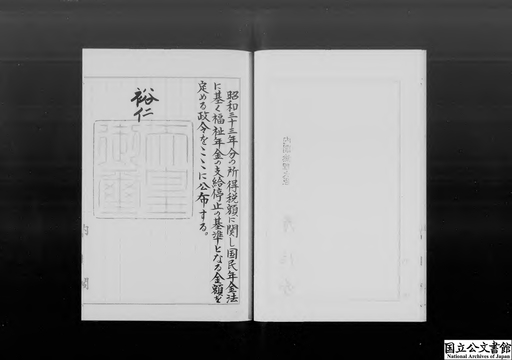 昭和三十三年分の所得税額に関し国民年金法
に基く福祉年金の支給停止の基準となる金額を
定める政令をここに公布する。
裕仁
天皇
御璽
国立公文書館
National Archives of Japan